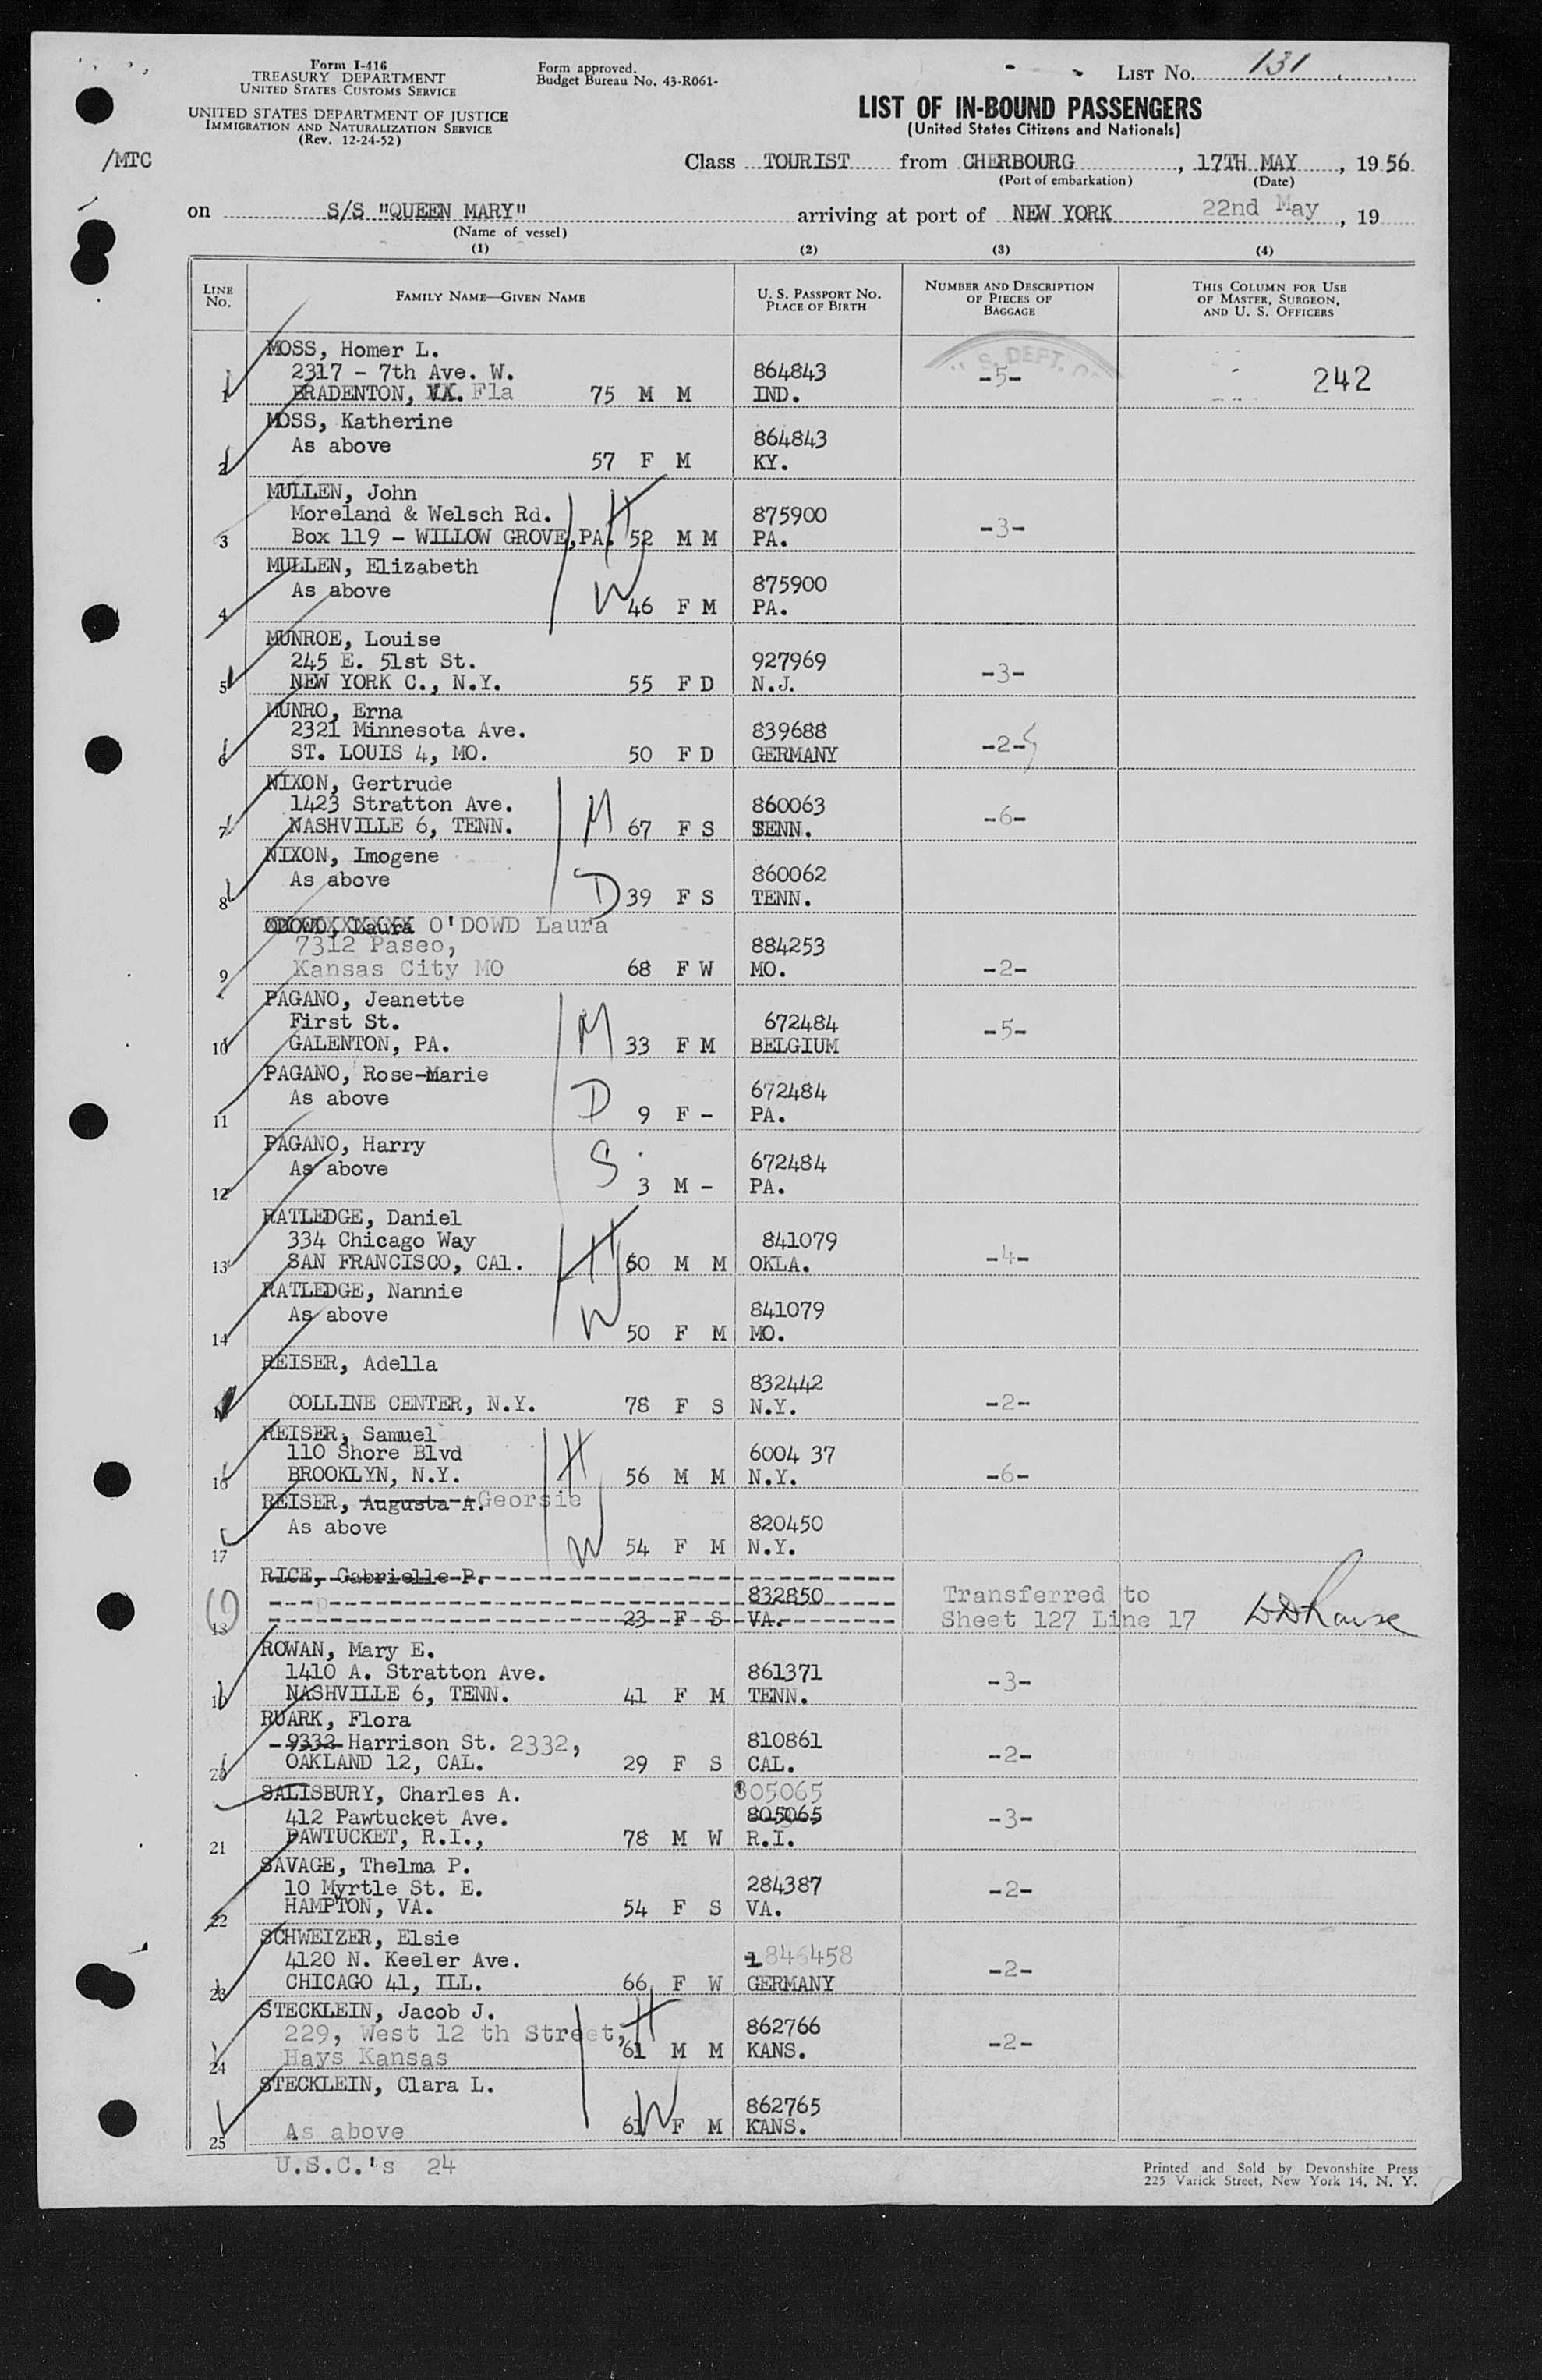 Form I-416
TREASURY DEPARTMENT
UNITED STATES CUSTOMS SERVICE
UNITED STATES DEPARTMENT OF JUSTICE
IMMIGRATION AND NATURALIZATION SERVICE
(Rev. 12-24-52)
Form approved.
Budget Bureau No. 43-R061-
LIST No. 131
LIST OF IN-BOUND PASSENGERS
(United States Citizens and Nationals)
/MTC
Class TOURIST from CHERBOURG, 17TH MAY, 1956
(Port of embarkation) (Date)
on S/S "QUEEN MARY" arriving at port of NEW YORK 22nd May, 19
(Name of vessel)
(1) (2) (3) (4)
LINE No. FAMILY NAME—GIVEN NAME U. S. PASSPORT No. PLACE OF BIRTH NUMBER AND DESCRIPTION OF PIECES OF BAGGAGE THIS COLUMN FOR USE OF MASTER, SURGEON, AND U. S. OFFICERS
MOSS, Homer L.
2317 - 7th Ave. W. 864843 -5- 242
1 BRADENTON, VA. Fla 75 M M IND.
U.S. DEPT. O
MOSS, Katherine
As above 864843
2 57 F M KY.
MULLEN, John
Moreland & Welsch Rd. H 875900 -3-
3 Box 119 - WILLOW GROVE, PA. 52 M M PA.
MULLEN, Elizabeth
As above 875900
4 W 46 F M PA.
MUNROE, Louise
245 E. 51st St. 927969 -3-
5 NEW YORK C., N.Y. 55 F D N.J.
MUNRO, Erna
2321 Minnesota Ave. 839688 -2-
6 ST. LOUIS 4, MO. 50 F D GERMANY
NIXON, Gertrude
1423 Stratton Ave. M 860063 -6-
7 NASHVILLE 6, TENN. 67 F S TENN.
NIXON, Imogene
As above 860062
8 D 39 F S TENN.
ODOWD, Laura O'DOWD Laura
7312 Paseo, 884253
9 Kansas City MO 68 F W MO. -2-
PAGANO, Jeanette
First St. M 672484 -5-
10 GALENTON, PA. 33 F M BELGIUM
PAGANO, Rose-Marie
As above D 672484
11 9 F - PA.
PAGANO, Harry
As above S 672484
12 3 M - PA.
RATLEDGE, Daniel
334 Chicago Way H 841079 -4-
13 SAN FRANCISCO, CAl. 50 M M OKLA.
RATLEDGE, Nannie
As above W 841079
14 50 F M MO.
REISER, Adella
832442
COLLINE CENTER, N.Y. 78 F S N.Y. -2-
REISER, Samuel
110 Shore Blvd H 6004 37
16 BROOKLYN, N.Y. 56 M M N.Y. -6-
REISER, Augusta A. Georsie
As above 820450
17 W 54 F M N.Y.
RICE, Gabrielle P.
832850 Transferred to
23 F S VA. Sheet 127 Line 17
ROWAN, Mary E.
1410 A. Stratton Ave. 861371 -3-
19 NASHVILLE 6, TENN. 41 F M TENN.
RUARK, Flora
9332 Harrison St. 2332, 810861 -2-
20 OAKLAND 12, CAL. 29 F S CAL.
SALISBURY, Charles A. 805065
412 Pawtucket Ave. 805065 -3-
21 PAWTUCKET, R.I., 78 M W R.I.
SAVAGE, Thelma P.
10 Myrtle St. E. 284387 -2-
22 HAMPTON, VA. 54 F S VA.
SCHWEIZER, Elsie
4120 N. Keeler Ave. 1 846458 -2-
23 CHICAGO 41, ILL. 66 F W GERMANY
STECKLEIN, Jacob J.
229, West 12 th Street, H 862766 -2-
24 Hays Kansas 61 M M KANS.
STECKLEIN, Clara L.
862765
25 As above 61 W F M KANS.
U.S.C.'s 24
Printed and Sold by Devonshire Press
225 Varick Street, New York 14, N. Y.